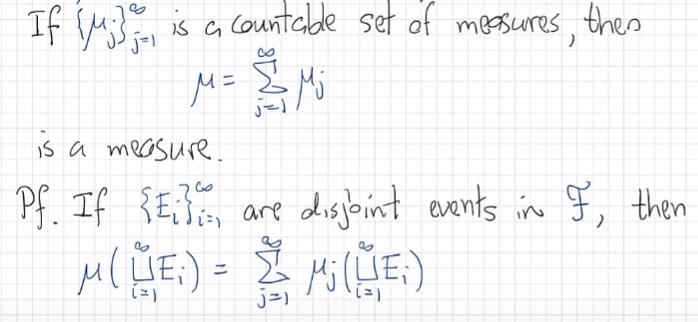 If {μⱼ}_{j=1}^∞ is a countable set of measures, then
μ = ∑_{j=1}^∞ μⱼ
is a measure.
Pf. If {Eᵢ}_{i=1}^∞ are disjoint events in ℱ, then
μ(⨆_{i=1}^∞ Eᵢ) = ∑_{j=1}^∞ μⱼ(⨆_{i=1}^∞ Eᵢ)